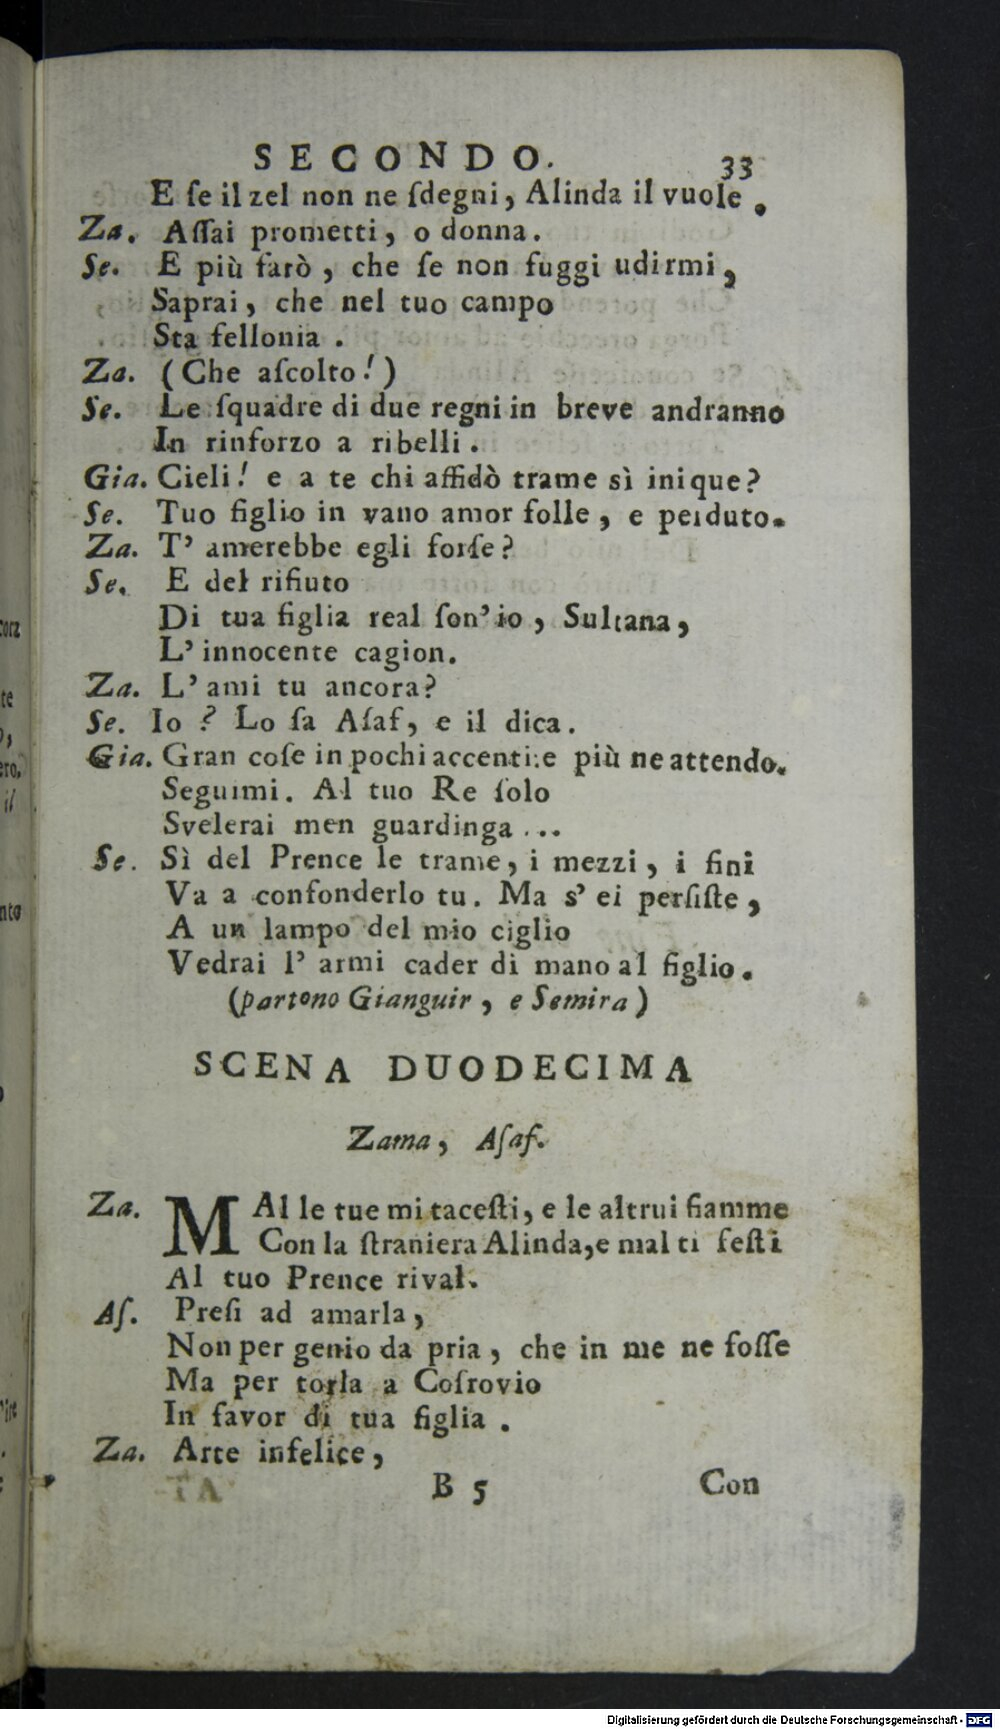 SECONDO. 33
E ſe il zel non ne ſdegni, Alinda il vuole.
Za. Aſſai prometti, o donna.
Se. E più farò, che ſe non fuggi udirmi,
Saprai, che nel tuo campo
Sta fellonia.
Za. (Che aſcolto!)
Se. Le ſquadre di due regni in breve andranno
In rinforzo a ribelli.
Gia. Cieli! e a te chi affidò trame sì inique?
Se. Tuo figlio in vano amor folle, e perduto.
Za. T' amerebbe egli forſe?
Se. E del rifiuto
Di tua figlia real ſon' io, Sultana,
L' innocente cagion.
Za. L' ami tu ancora?
Se. Io? Lo ſa Aſaf, e il dica.
Gia. Gran coſe in pochi accenti: e più ne attendo.
Seguimi. Al tuo Re ſolo
Svelerai men guardinga ...
Se. Sì del Prence le trame, i mezzi, i fini
Va a confonderlo tu. Ma s' ei perſiſte,
A un lampo del mio ciglio
Vedrai l' armi cader di mano al figlio.
(partono Gianguir, e Semira)
SCENA DUODECIMA
Zama, Aſaf.
Za. MAl le tue mi taceſti, e le altrui fiamme
Con la ſtraniera Alinda, e mal ti feſti
Al tuo Prence rival.
Aſ. Preſi ad amarla,
Non per genio da pria, che in me ne foſſe
Ma per torla a Coſrovio
In favor di tua figlia.
Za. Arte infelice,
B 5 Con
Digitalisierung gefördert durch die Deutsche Forschungsgemeinschaft - DFG